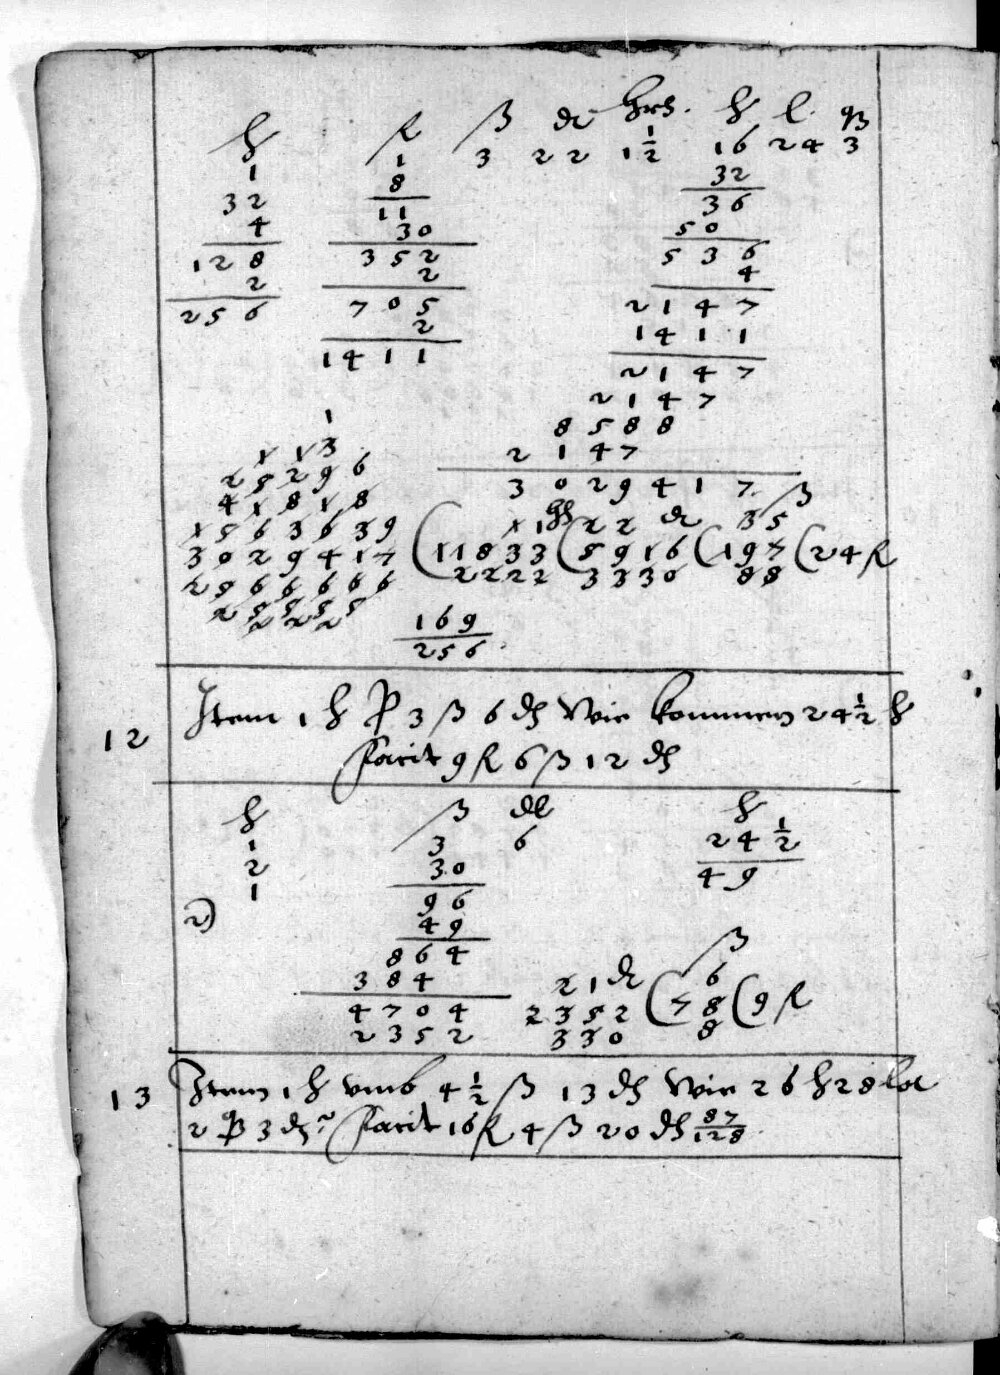 ℔ fl ß ₰ hlr. ℔ l. q̃
1 1 3 22 1 1/2 16 24 3
32 8 32
4 11 36
128 30 50
2 352 536
256 2 4
705 2147
2 1411
1411 2147
2147
8588
2147
3029417
1
1 1 3
2 5 2 9 6
4 1 8 1 8
1 5 6 3 6 3 9 1 1 hlr 2 2 ₰ 3 5 ß
3029417 ( 11833 ( 5916 ( 197 ( 24 fl
2 5 6 6 6 6 6 2222 3330 88
2 5 5 5 5
2 2 2
169
256
12 Item 1 ℔ P 3 ß 6 ₰ Wie kommen 24 1/2 ℔
Facit 9 fl 6 ß 12 ₰
℔ ß ₰ ℔
1 3 6 24 1/2
2 30 49
1 96
2) 49
864
384 2 1 ₰ 6 ß
4704 2352 ( 78 ( 9 fl
2352 330 8
13 Item 1 ℔ vmb 4 1/2 ß 13 ₰ Wie 26 ℔ 28 lot
2 q̃ 3 ₰ Facit 16 fl 4 ß 20 ₰ 87/128